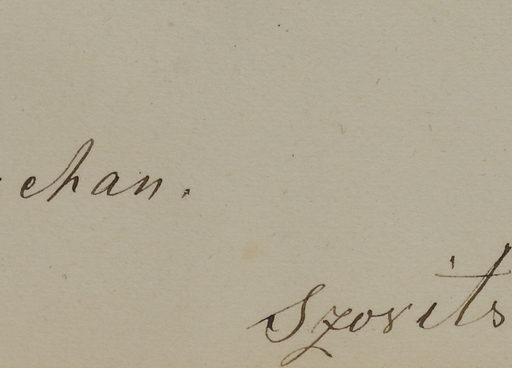 chan.
Szovits